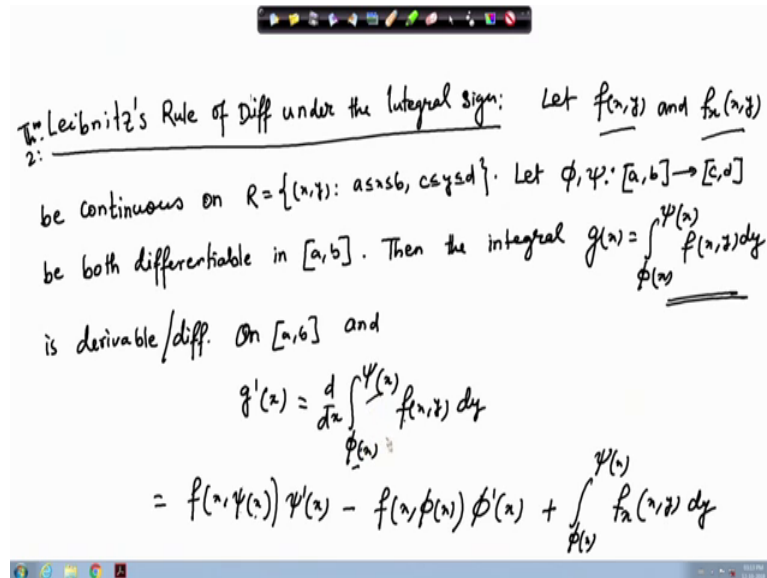 Thm. Leibnitz's Rule of Diff under the Integral sign: Let f(x,y) and fx(x,y)
2:
be continuous on R = {(x,y): a≤x≤b, c≤y≤d}. Let ϕ, ψ: [a,b] → [c,d]
be both differentiable in [a,b]. Then the integral g(x) = ∫_{ϕ(x)}^{ψ(x)} f(x,y) dy
is derivable/diff. on [a,b] and
g'(x) = d/dx ∫_{ϕ(x)}^{ψ(x)} f(x,y) dy
= f(x, ψ(x)) ψ'(x) - f(x, ϕ(x)) ϕ'(x) + ∫_{ϕ(x)}^{ψ(x)} fx(x,y) dy